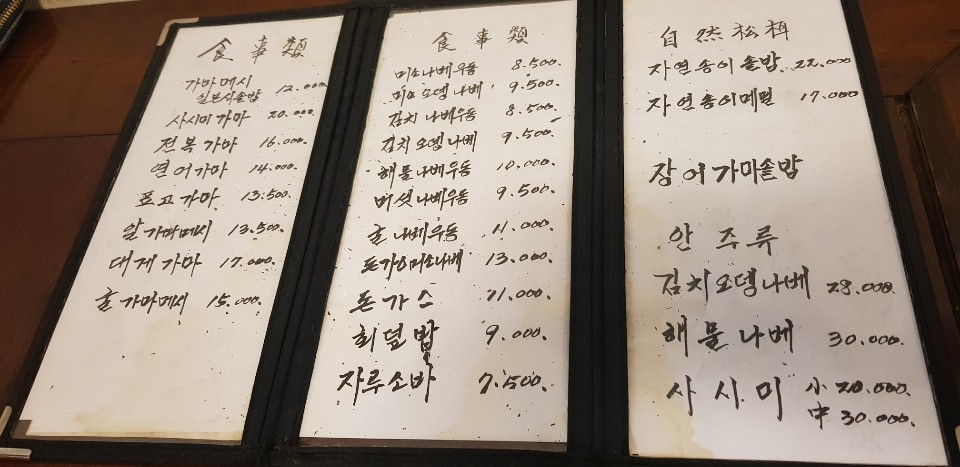 食事類
가마메시
일본식솥밥 12.000.
사시미가마 20.000.
전복가마 16.000.
연어가마 14.000.
표고가마 13.500.
알가마메시 13.500.
대게가마 17.000.
굴가마메시 15.000.
食事類
미소나베우동 8.500.
미소오뎅나베 9.500.
김치나베우동 8.500.
김치오뎅나베 9.500.
해물나베우동 10.000.
버섯나베우동 9.500.
굴나베우동 11.000.
돈가스미소나베 13.000.
돈가스 11.000.
회덮밥 9.000.
자루소바 7.500.
自然松栮
자연송이솥밥 22.000
자연송이메밀 17.000
장어가마솥밥
안주류
김치오뎅나베 28.000.
해물나베 30.000.
사시미 小 20.000.
中 30.000.